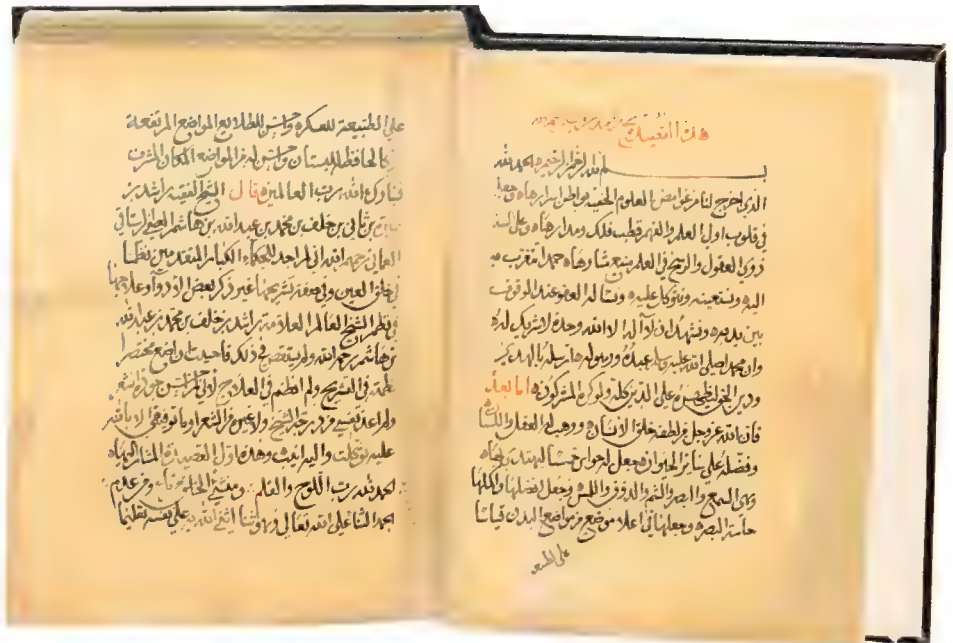 هذا القصيدة
بسم الله الرحمن الرحيم الحمد لله
الذي اخرج لنا من غوامض العلوم الخفية بواطن اسرارها وجعل
في قلوب اولي العلم والفهم قطب فلك ومدارها وعلى
ذوي العقول والرجح في العلم ينبع حمدا نتقرب به
اليه ونستعينه ونتوكل عليه ونساله العفو عند الوقوف
بين يديه ونشهد ان لا اله الا الله وحده لا شريك له
وان محمد اصلى الله عليه وسلم عبده ورسوله ارسله بالهدى
ودين الحق ليظهره على الدين كله ولو كره المشركون اما بعد
فان الله عز وجل من لطفه خلق الانسان ووهب له العقل واللسان
وفضله على سائر الحيوان وجعل له حواس خمسا ليهتدي بها
وهي السمع والبصر والشم والذوق واللمس وجعل افضلها واكملها
حاسة البصر وجعلها في اعلا موضع من مواضع البدن قياسا
على الطبيعة
على الطبيعة للعسكر للطلايع المواضع المرتفعة
كالحافظ للبستان له من المواضع المكان المشرف
فتبارك الله رب العالمين قال الشيخ الفقيه راشد بن
بن خلف بن محمد بن عبد الله بن هاشم العيني الرستاقي
العماني رحمهم الله اني لم اجد للحكماء الكبار المتقدمين نظما
في خلق العين وفي صفة تشريحها غير ذكر بعض الادواء وعلاجها
في نظم الشيخ العالم العلامة راشد بن خلف بن محمد بن عبد الله
بن هاشم رحمه الله ولم يتقص في ذلك فاحببت ان اضع مختصرا
نظمته في التشريح ولم انظم في العلاج
ولم اعد نفسي من درجة الشيخ ولا من الشعراء وما توفيقي الا بالله
عليه توكلت واليه انيب وهذه اول القصيدة
الحمد لله رب اللوح والقلم ومنشئ الخلق من عدم
الحمد الثنا على الله تعالى وهو ثنا اثنى الله به على نفسه تعظيما